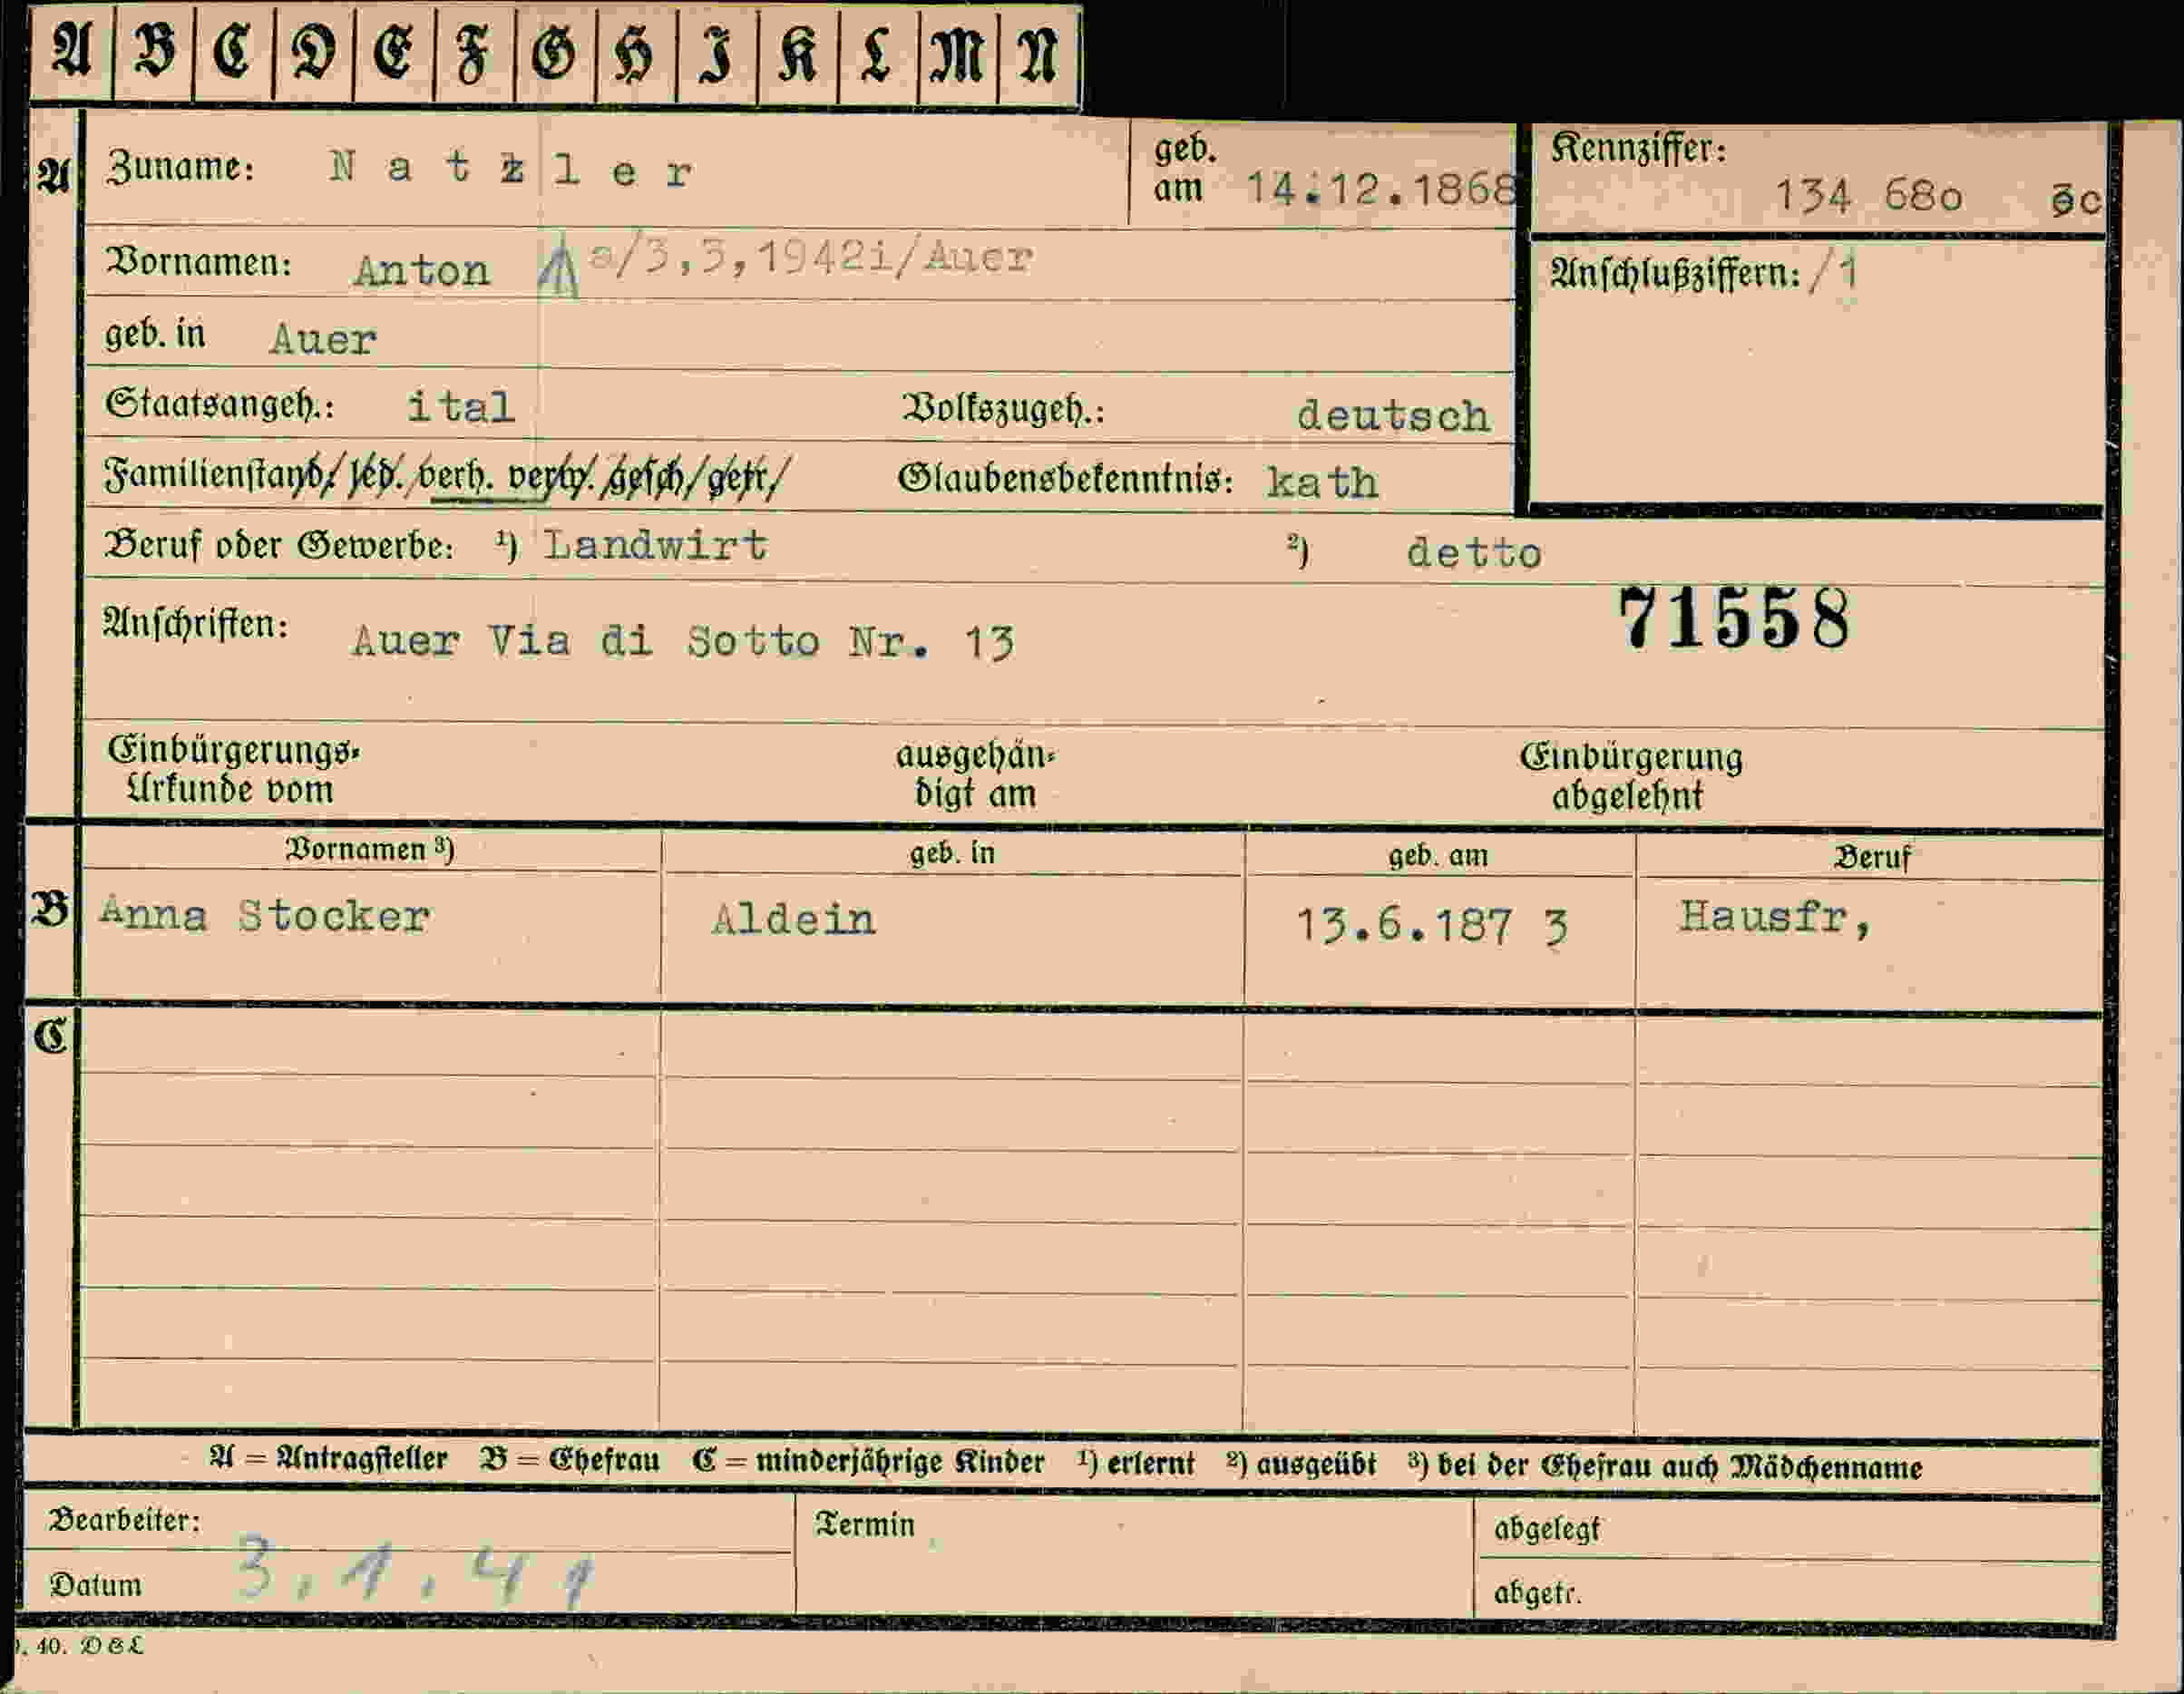 A B C D E F G H I K L M N
A Zuname: Natzler geb. am 14.12.1868 Kennziffer: 134 68o 3c
Vornamen: Anton a/3,3,1942i/Auer Anschlußziffern: /1
geb. in Auer
Staatsangeh.: ital Volkszugeh.: deutsch
Familienstand/ led. verh. verw. gesch/getr/ Glaubensbekenntnis: kath
Beruf oder Gewerbe: ¹) Landwirt ²) detto
71558
Anschriften: Auer Via di Sotto Nr. 13
Einbürgerungs-Urkunde vom ausgehändigt am Einbürgerung abgelehnt
Vornamen ³) geb. in geb. am Beruf
B Anna Stocker Aldein 13.6.187 3 Hausfr,
C
A = Antragsteller B = Ehefrau C = minderjährige Kinder ¹) erlernt ²) ausgeübt ³) bei der Ehefrau auch Mädchenname
Bearbeiter: Termin abgelegt
Datum 3.1.41 abgetr.
. 40. DGL